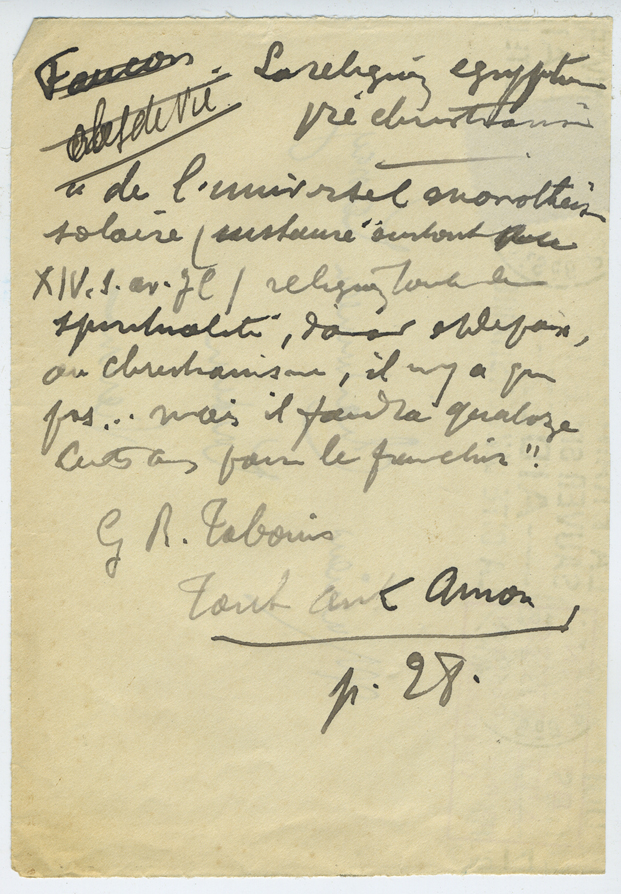 Faucon. La religion égyptien
clef de Vie. pré chrétienne
" de l'universel monothéis
solaire (instauré surtout au
XIV. s. av. JC) religion toute de
spiritualité, d'amour et de paix,
au christianisme, il n'y a qu'un
pas... mais il faudra quatorze
cents ans pour le franchir".
G R. Tabouis
Tout ank Amon
p. 28.